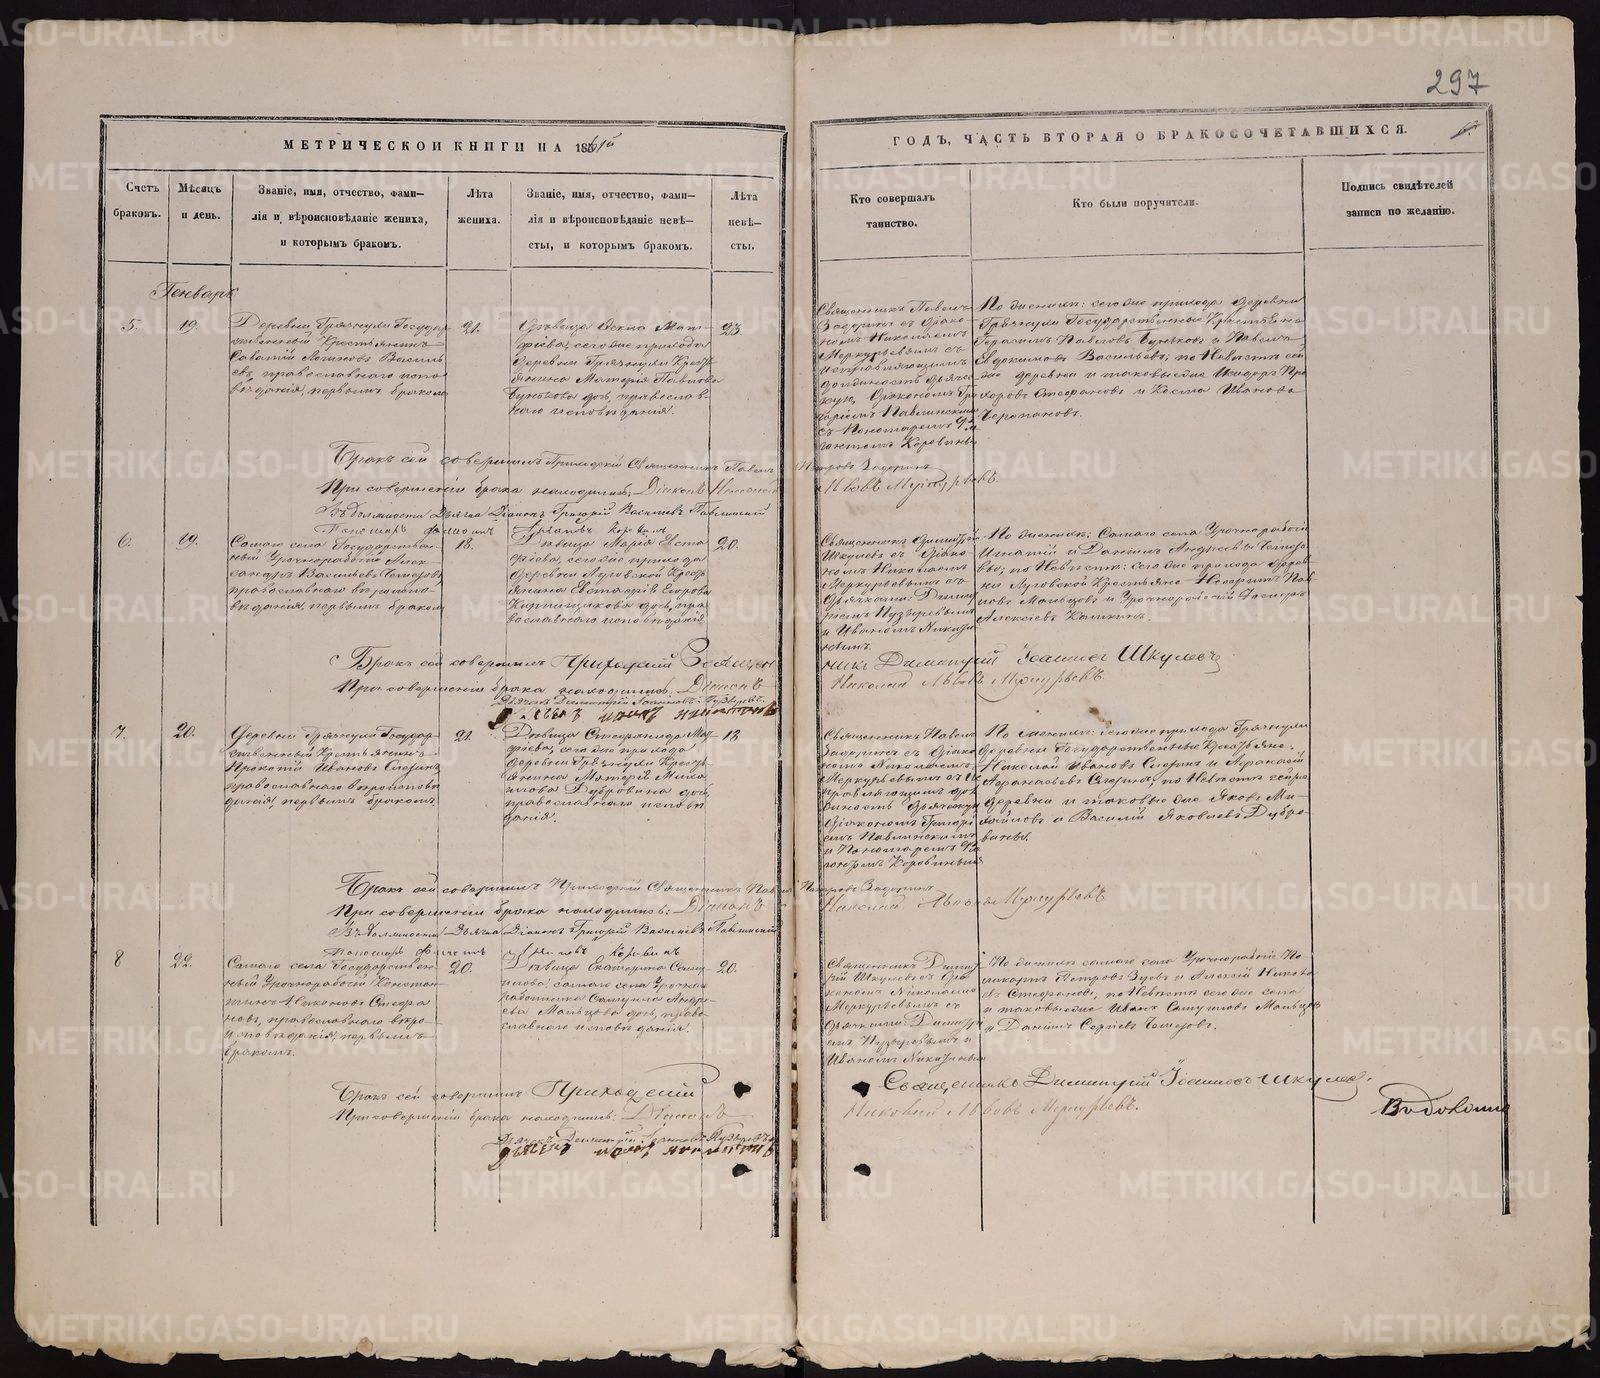 297
МЕТРИЧЕСКОЙ КНИГИ НА 1861й
ГОДЪ, ЧАСТЬ ВТОРАЯ О БРАКОСОЧЕТАВШИХСЯ.
Счетъ браковъ.
Мѣсяцъ и день.
Званіе, имя, отчество, фами-
лія и вѣроисповѣданіе жениха,
и которымъ бракомъ.
Лѣта жениха.
Званіе, имя, отчество, фами-
лія и вѣроисповѣданіе невѣ-
сты, и которымъ бракомъ.
Лѣта невѣ-
сты.
Кто совершалъ
таинство.
Кто были поручители.
Подпись свидѣтелей
записи по желанію.
Генварь
5.
19.
Деревни Грязнухи Государ-
ственный Крестьянинъ
Савватій Логиновъ Василь
евъ, православнаго испо-
вѣданія, первымъ бракомъ
21.
Дѣвица Мат-
фіева, сего же прихода
деревни Грязнухи Кресть
янина Матфія Павлова
дочь, православ-
наго исповѣданія.
23.
Священникъ Павелъ
Задоринъ съ Діако-
номъ Николаемъ
Меркурьевымъ съ
исправляющимъ
должность Дьяч-
ка, Діакономъ Гри
горіемъ Павлинскимъ
съ Пономаремъ
Коровинымъ
По женихѣ: сего же прихода деревни
Грязнухи Государственный Крестьяне
Герасимъ Павловъ и Павелъ
Евдокимовъ Васильевъ; по Невѣстѣ сей
же деревни и таковые же Исидоръ Про
хоровъ Стефановъ и Косма Ивановъ
Черепановъ.
Бракъ сей совершилъ Приходскій Священникъ Павелъ Петровъ Задоринъ
При совершеніи брака находились: Діаконъ Николай Львовъ Меркурьевъ.
Въ должности Дьячка Діаконъ Григорій Васильевъ Павлинскій
Пономарь
6.
19.
Самаго села Государствен-
ный Урочнорабочій Алек-
сандръ Васильевъ
православнаго вѣроиспо-
вѣданія, первымъ бракомъ
18.
Дѣвица Марія Евста
фіева, сего же прихода
деревни Луговской Кресть
янина Евстафія Егорова
Кирпищикова дочь, пра-
вославнаго исповѣданія
20.
Священникъ Димитрій
Шкулевъ съ Діако-
номъ Николаемъ
Меркурьевымъ съ
Дьячками: Дими-
тріемъ Пузыревымъ
и Иваномъ Никити
нымъ.
По женихѣ: Самаго села Урочнорабочій
Игнатій и Даніилъ Андреевы
по Невѣстѣ: сего же прихода дерев-
ни Луговской Крестьяне Павловъ
Мальцовъ и Урочнорабочій
Алексѣевъ Калинкинъ.
Бракъ сей совершилъ Приходскій Священникъ Димитрій Іоанновъ Шкулевъ
При совершеніи брака находились: Діаконъ Николай Львовъ Меркурьевъ.
Дьячекъ Димитрій Іоанновъ Пузыревъ.
7.
20.
Деревни Грязнухи Государ-
ственный Крестьянинъ
Прокопій Ивановъ
православнаго вѣроисповѣ
данія, первымъ бракомъ.
21.
Дѣвица Стефанида Мат
фіева, сего же прихода
деревни Грязнухи Кресть
янина Матфія Михай
лова Дубровина дочь,
православнаго исповѣ
данія.
18
Священникъ Павелъ
Задоринъ съ Діако
номъ Николаемъ
Меркурьевымъ съ Ис
правляющимъ дол
жность Дьячка
Діакономъ Григорі
емъ Павлинскимъ
и Пономаремъ
Коровинымъ
По женихѣ: сего же прихода Грязнухи
деревни Государственные Крестьяне:
Николай Ивановъ и Афанасій
Афанасьевъ по Невѣстѣ сей же
деревни и таковые же Яковъ Ми-
хайловъ и Василій Яковлевъ Дубро-
вины.
Бракъ сей совершилъ Приходскій Священникъ Павелъ Петровъ Задоринъ
При совершеніи брака находились: Діаконъ Николай Львовъ Меркурьевъ
Въ должности Дьячка Діаконъ Григорій Васильевъ Павлинскій
Пономарь
8
22.
Самаго села Государствен-
ный Урочнорабочій Констан-
тинъ Никоновъ Стефа
новъ, православнаго вѣро-
исповѣданія, первымъ
бракомъ.
20.
Дѣвица Екатерина Саму
илова, самаго села Урочна
работника Самуила Андре-
ева Мальцова дочь, право-
славнаго исповѣданія.
20.
Священникъ Димит-
рій Шкулевъ съ Діа-
кономъ Николаемъ
Меркурьевымъ съ
Дьячками: Димитрі
емъ Пузыревымъ и
Иваномъ Никитинымъ
По женихѣ самаго села Урочнорабочій
Петровъ Зуевъ и Алексѣй
Стефановъ, по Невѣстѣ сего же села
и таковые же Иванъ Самуиловъ Мальцовъ
и Даніилъ Сергѣевъ
Бракъ сей совершилъ Приходскій Священникъ Димитрій Іоанновъ Шкулевъ.
При совершеніи брака находились: Діаконъ Николай Львовъ Меркурьевъ.
Дьячекъ Димитрій Іоанновъ Пузыревъ
METRIKI.GASO-URAL.RU